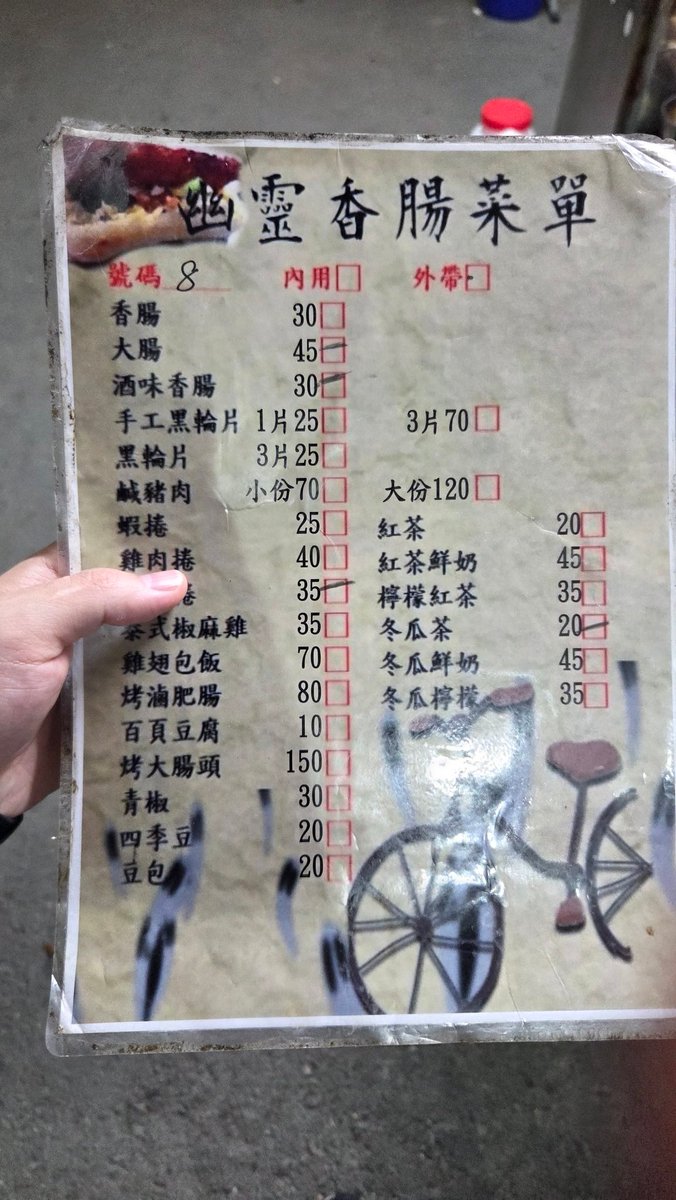 幽靈香腸菜單
號碼 8 內用 外帶
香腸 30
大腸 45
酒味香腸 30
手工黑輪片 1片25 3片70
黑輪片 3片25
鹹豬肉 小份70 大份120
蝦捲 25 紅茶 20
雞肉捲 40 紅茶鮮奶 45
捲 35 檸檬紅茶 35
泰式椒麻雞 35 冬瓜茶 20
雞翅包飯 70 冬瓜鮮奶 45
烤滷肥腸 80 冬瓜檸檬 35
百頁豆腐 10
烤大腸頭 150
青椒 30
四季豆 20
豆包 20